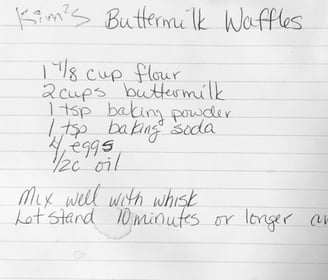 Kim's Buttermilk Waffles
1 7/8 cup flour
2 cups buttermilk
1 tsp baking powder
1 tsp baking soda
4 eggs
1/2c oil
Mix well with whisk
Let stand 10 minutes or longer